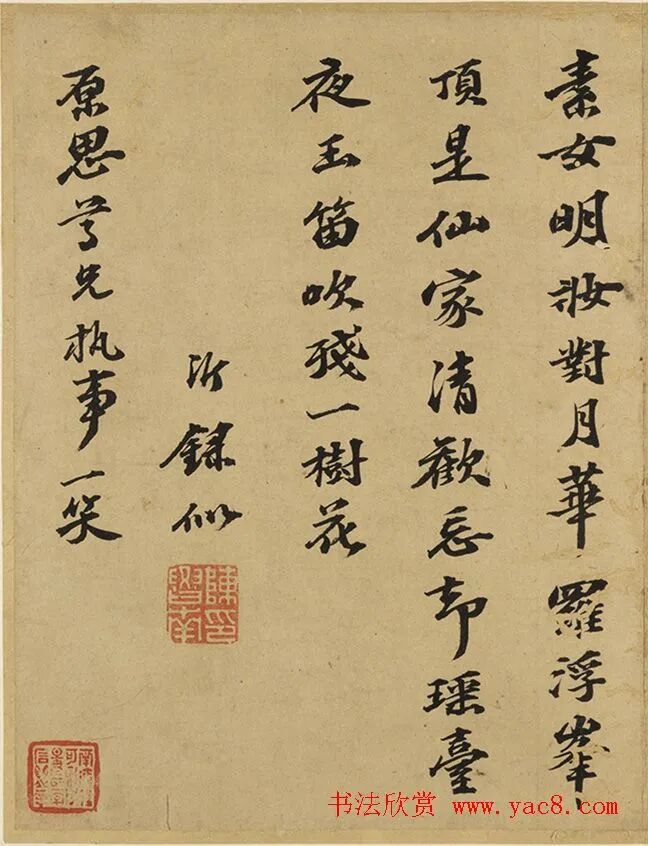 素女明妝對月華羅浮峯
頂是仙家清歡忘却瑶臺
夜玉笛吹殘一樹花
沂錄似
原思尊兄执事一笑
书法欣赏 www.yac8.com